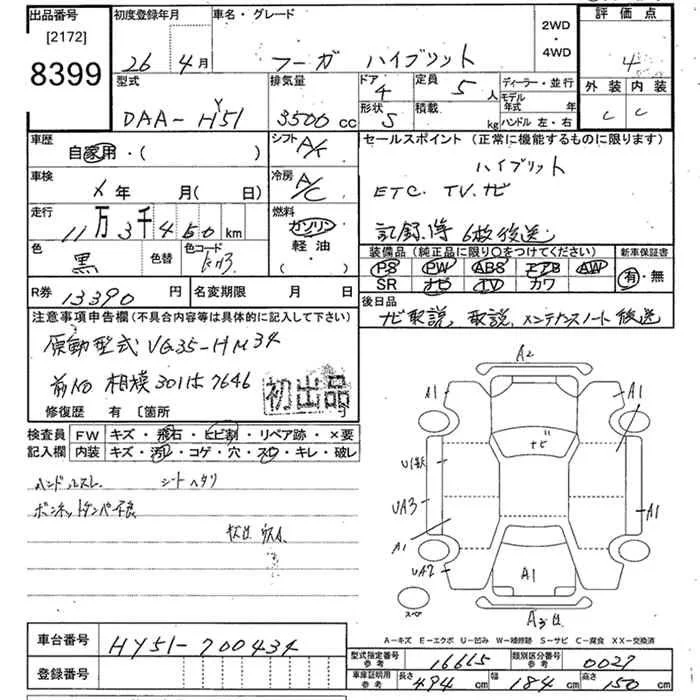 出品番号
[2172]
8399
初度登録年月
26年 4月
車名・グレード
フーガ ハイブリット
2WD
・
4WD
評価点
4
外装 内装
C C
型式
DAA-HY51
排気量
3500cc
ドア
4
形状
S
定員
5人
積載
kg
ディーラー・並行
モデル年式 年
ハンドル 左・右
車歴
自家用・( )
シフト
A/T
車検
X年 月( 日)
冷房
A/C
走行
11万3千450km
燃料
ガソリン
軽油・
( )
色
黒
色替
色コード
KH3
セールスポイント (正常に機能するものに限ります)
ハイブリット
ETC. TV. ナビ
記録簿 6枚後送
装備品 (純正品に限り○をつけてください)
PS PW ABS エアB AW
SR ナビ TV カワ
新車保証書
有・無
R券 13390円
名変期限 月 日
後日品
ナビ取説, 取説, メンテナンスノート後送
注意事項申告欄 (不具合内容等は具体的に記入して下さい)
原動型式 VG35-HM34
前NO 相模 301 は 7646
初出品
修復歴 有 〔箇所 〕
検査員記入欄
FW キズ・飛石・ヒビ割・リペア跡・×要
内装 キズ・汚レ・コゲ・穴・スレ・キレ・破レ
ハンドルスレ シートヘタリ
ボンネットダンパー不良
A2
A1
A1
ナビ
UA3
A1
A1
UA2
A1
スペア
A-キズ E-エクボ U-凹み W-補修跡 S-サビ C-腐食 XX-交換済
車台番号 HY51-700434
登録番号
型式指定番号 参考 16615
類別区分番号 参考 0027
車庫証明用 参考 長さ 494cm 幅 184cm 高さ 150cm